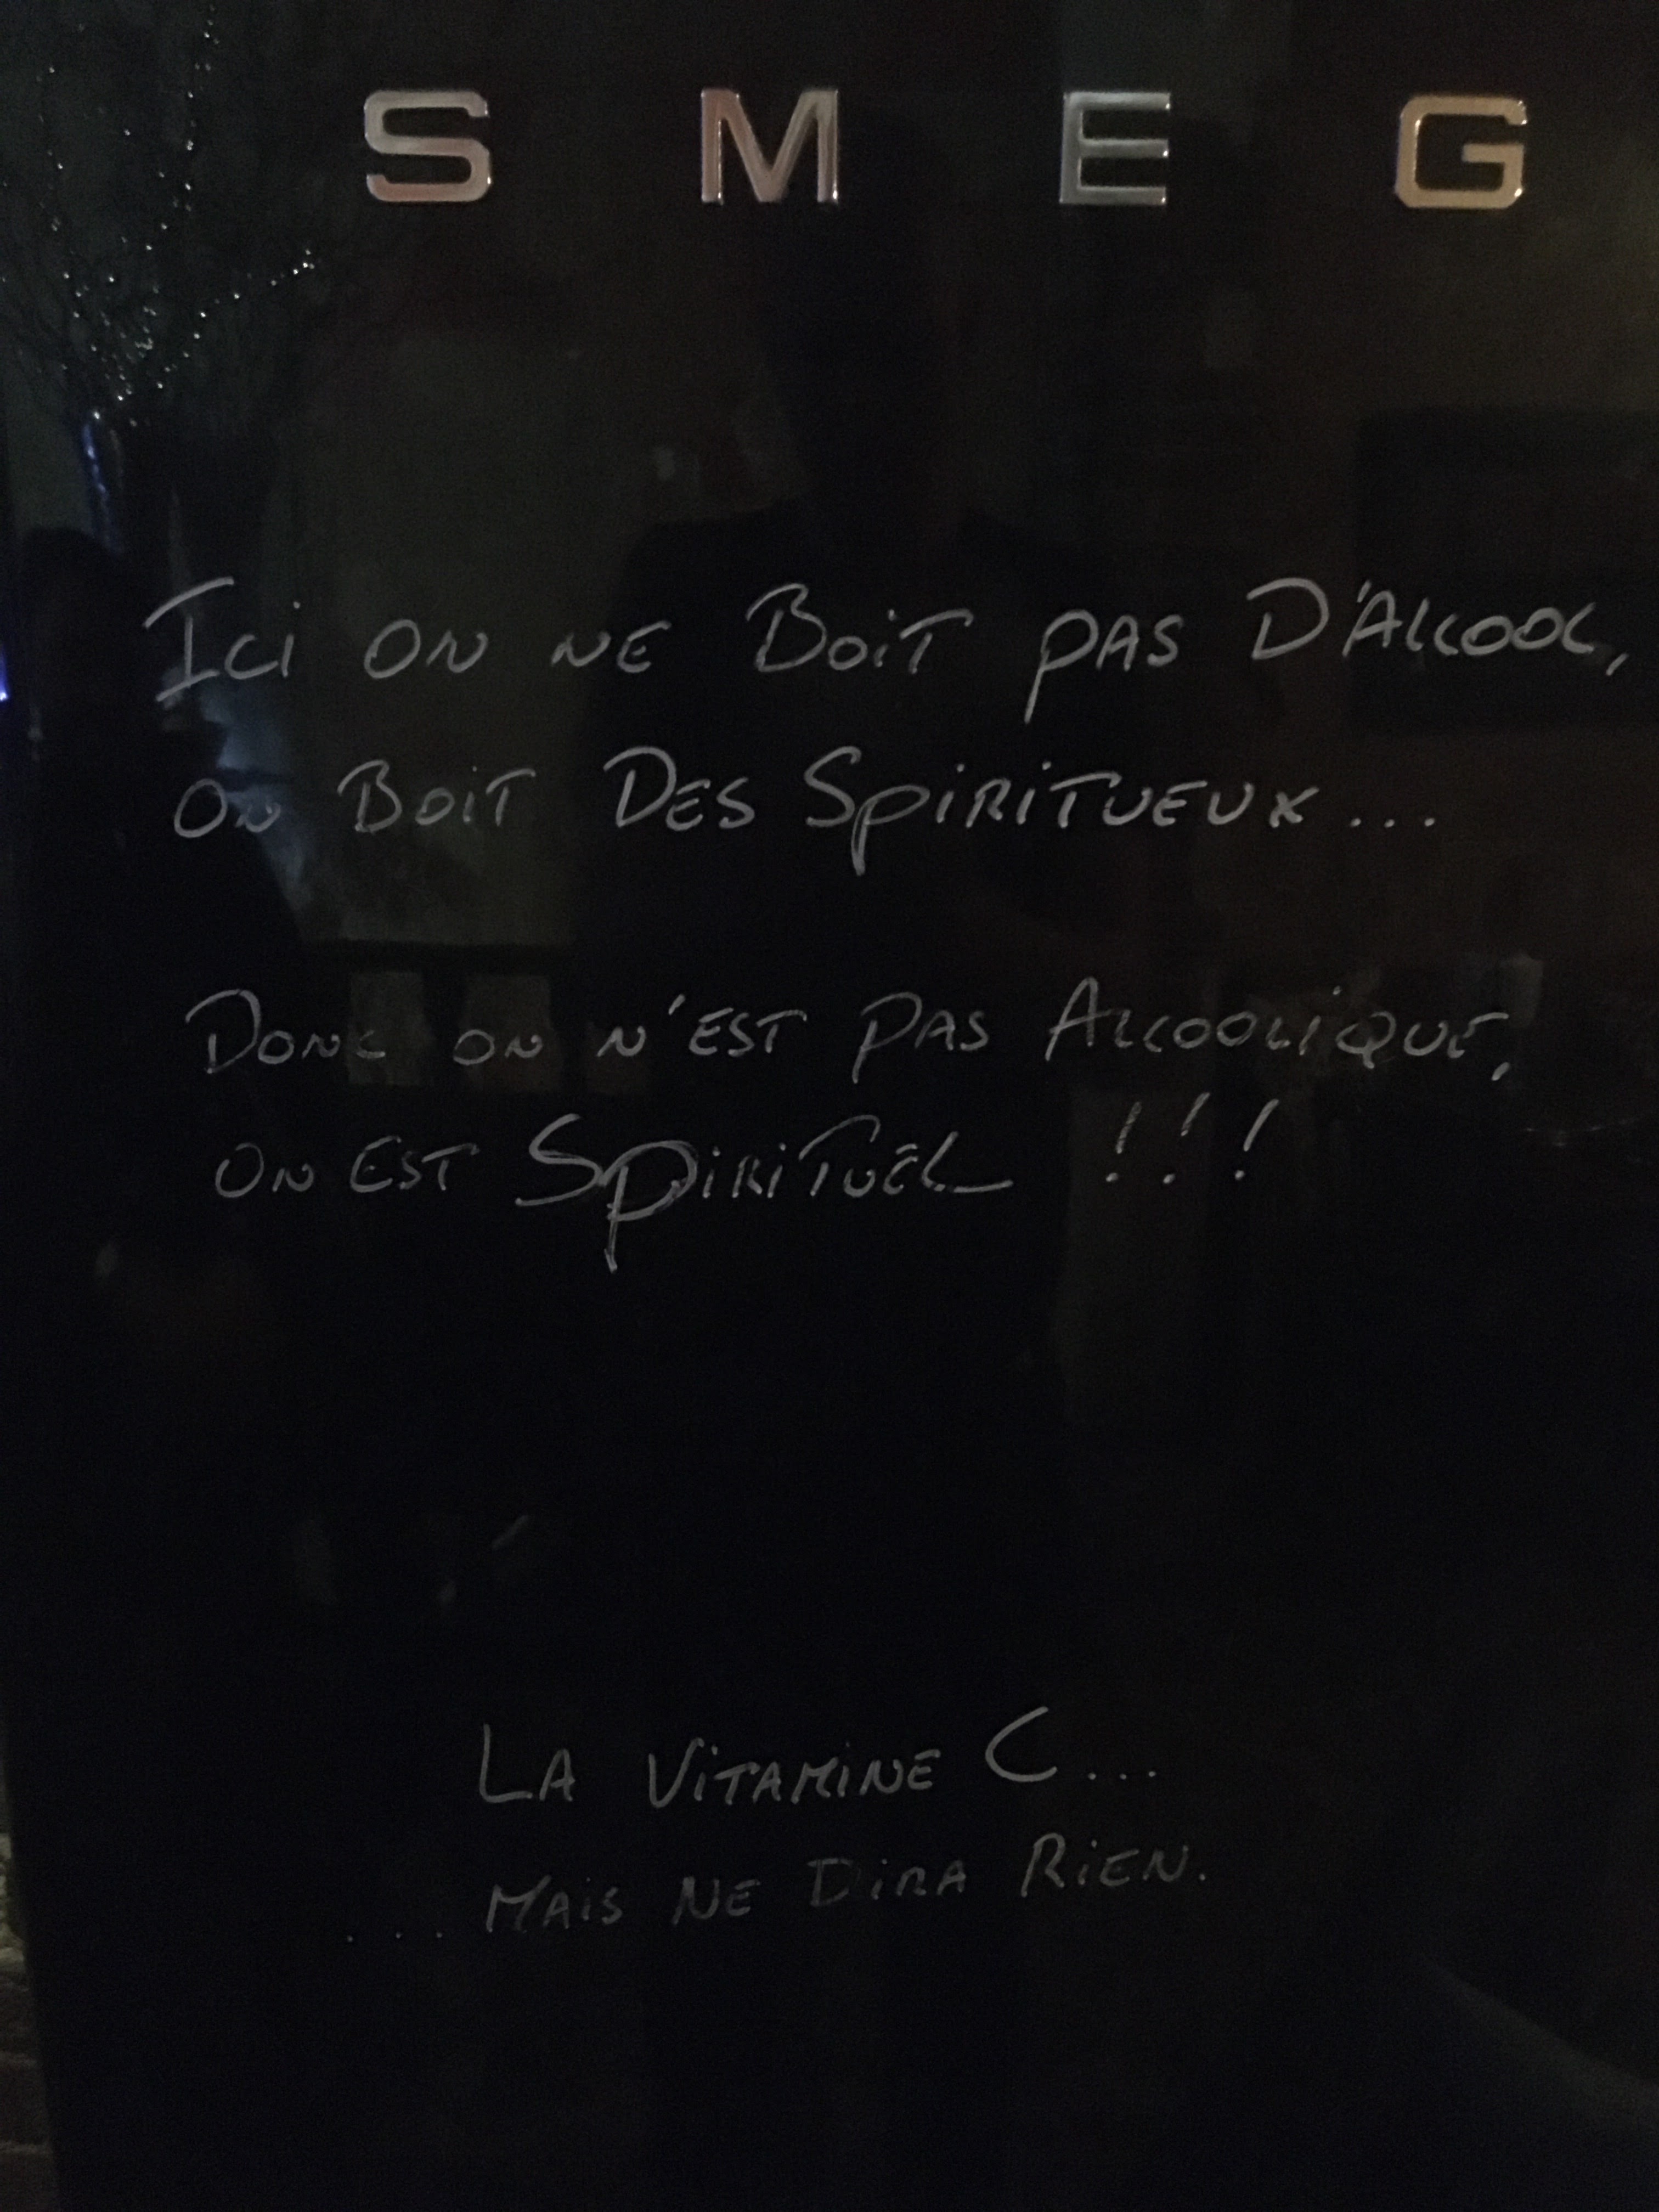 SMEG
Ici on ne Boit pas D'Alcool,
on Boit Des Spiritueux...
Donc on n'est pas Alcoolique,
on est Spirituel !!!
La Vitamine C...
...Mais ne Dira Rien.